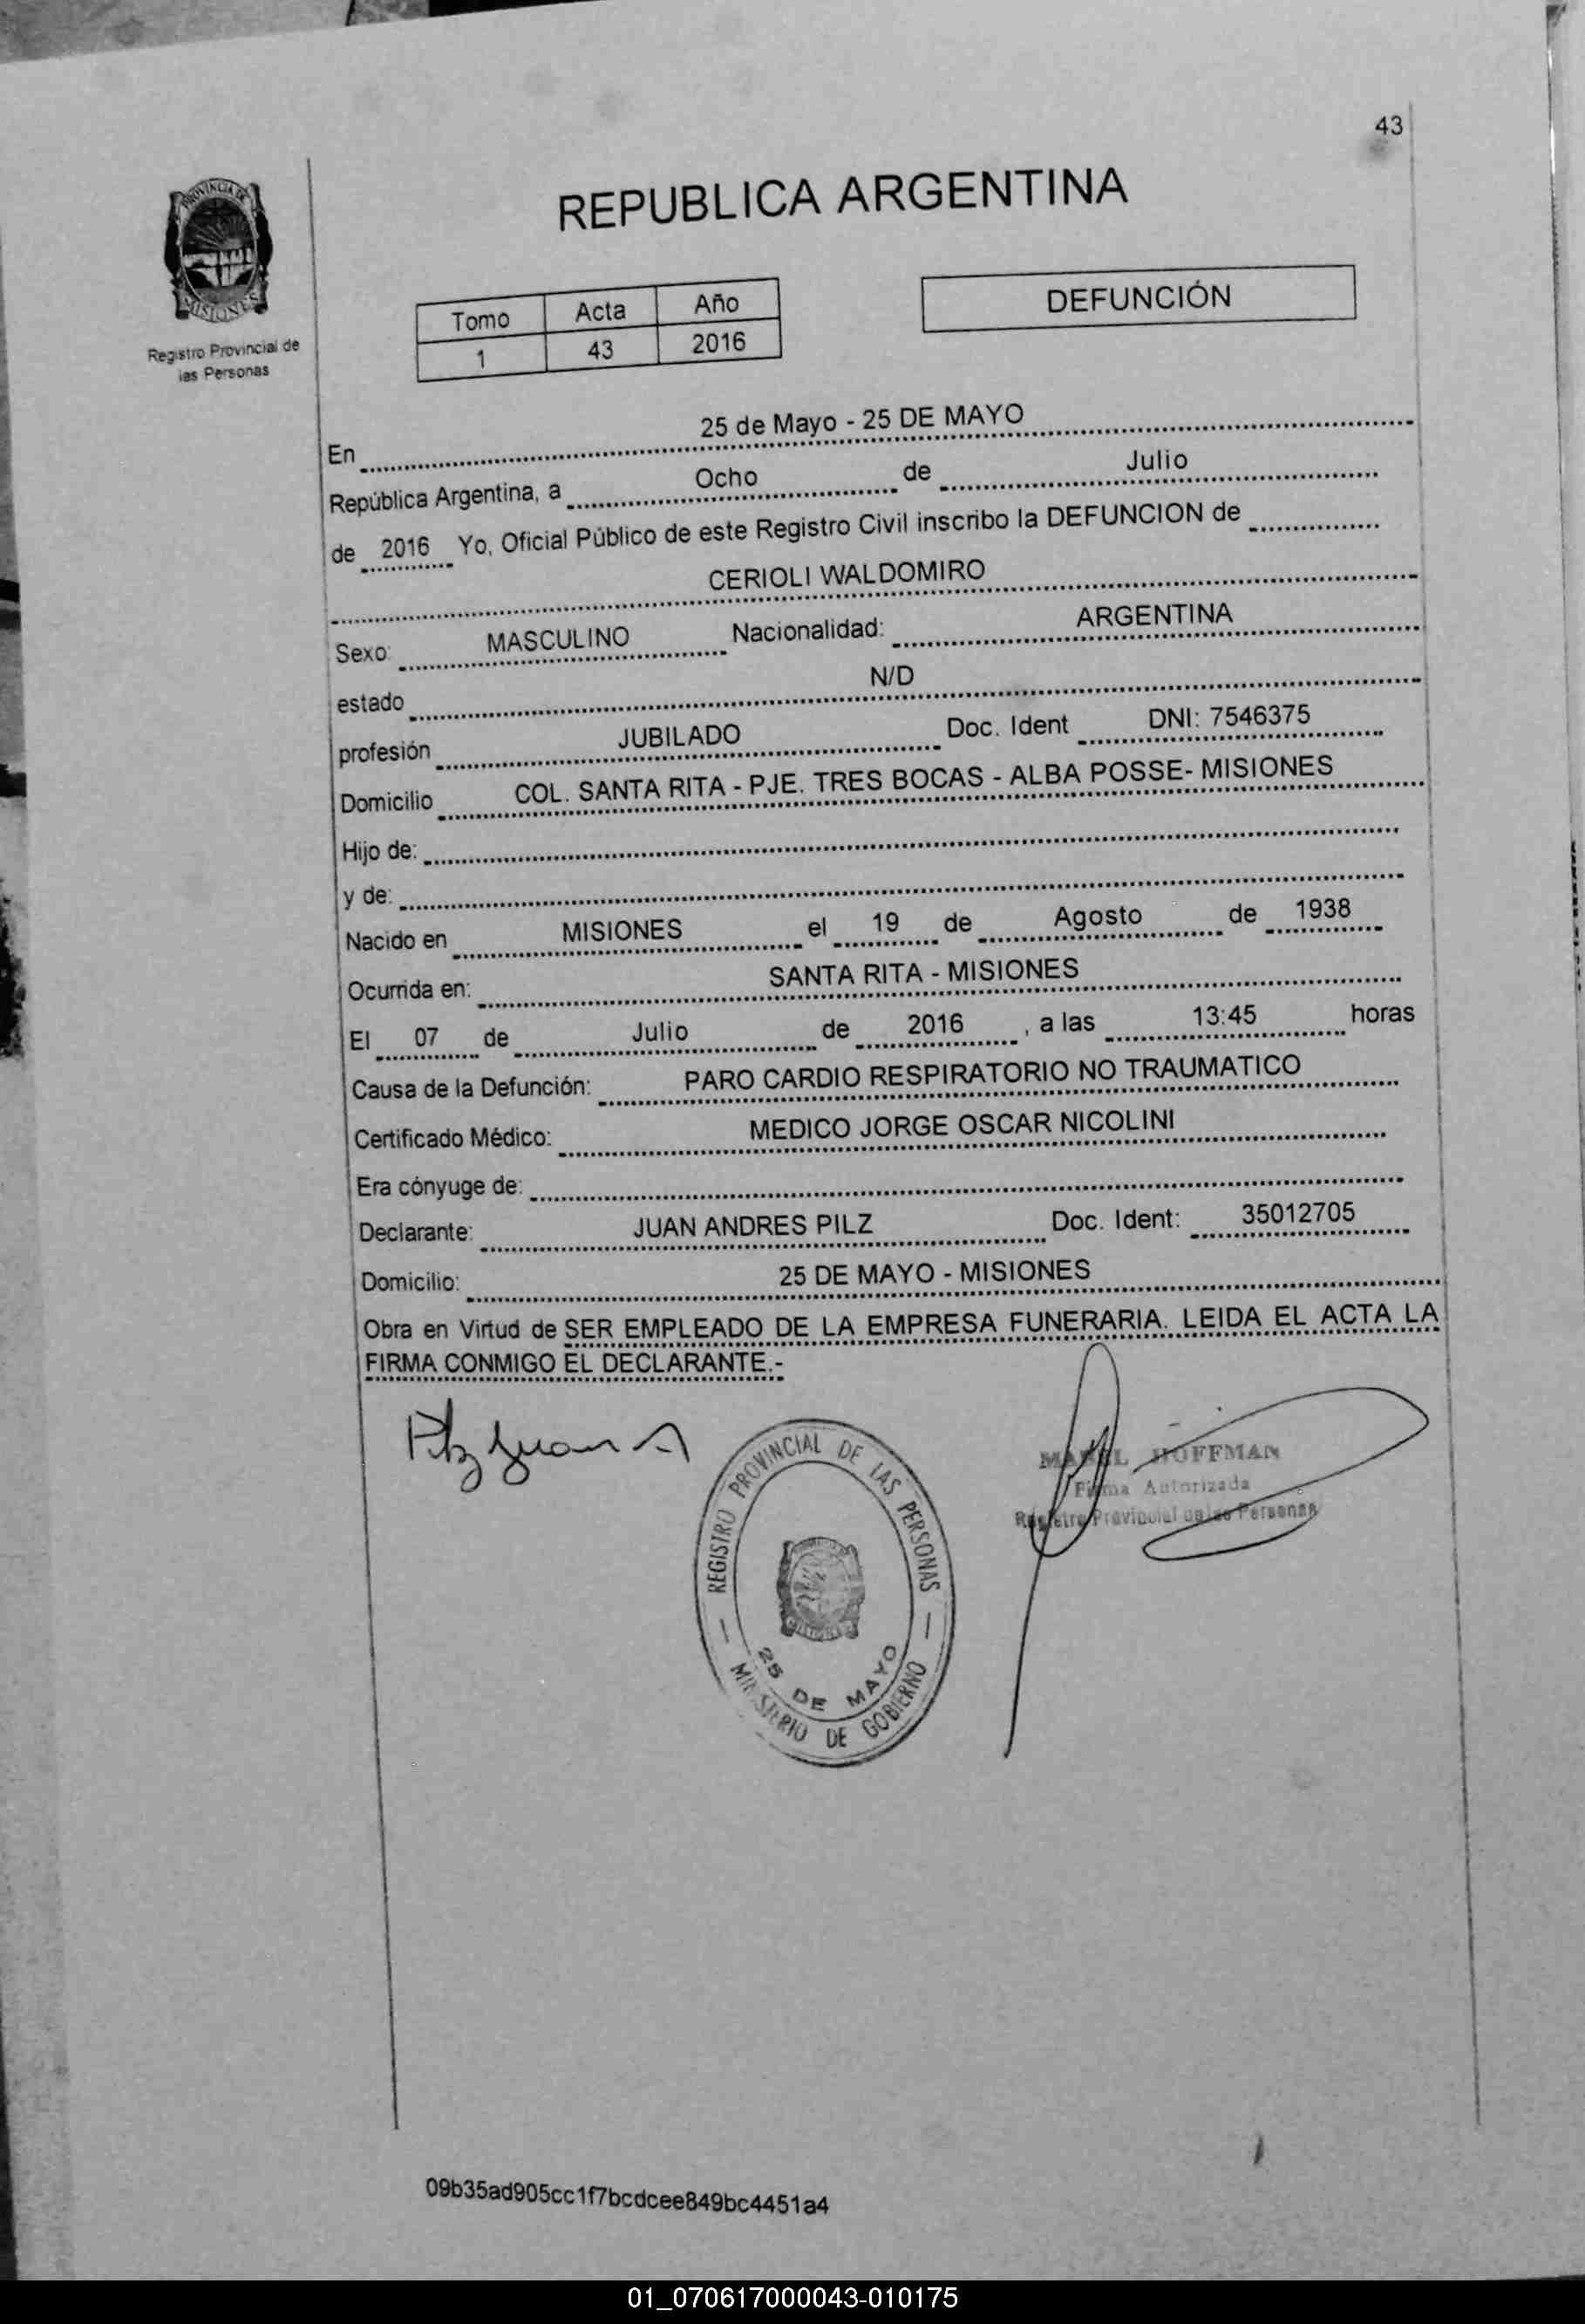 43
PROVINCIA DE
MISIONES
Registro Provincial de
las Personas
REPUBLICA ARGENTINA
Tomo Acta Año
1 43 2016
DEFUNCIÓN
En 25 de Mayo - 25 DE MAYO
República Argentina, a Ocho de Julio
de 2016 Yo, Oficial Público de este Registro Civil inscribo la DEFUNCION de
CERIOLI WALDOMIRO
Sexo: MASCULINO Nacionalidad: ARGENTINA
estado N/D
profesión JUBILADO Doc. Ident DNI: 7546375
Domicilio COL. SANTA RITA - PJE. TRES BOCAS - ALBA POSSE- MISIONES
Hijo de:
y de:
Nacido en MISIONES el 19 de Agosto de 1938
Ocurrida en: SANTA RITA - MISIONES
El 07 de Julio de 2016 , a las 13:45 horas
Causa de la Defunción: PARO CARDIO RESPIRATORIO NO TRAUMATICO
Certificado Médico: MEDICO JORGE OSCAR NICOLINI
Era cónyuge de:
Declarante: JUAN ANDRES PILZ Doc. Ident: 35012705
Domicilio: 25 DE MAYO - MISIONES
Obra en Virtud de SER EMPLEADO DE LA EMPRESA FUNERARIA. LEIDA EL ACTA LA
FIRMA CONMIGO EL DECLARANTE.-
Pilz Juan A
REGISTRO PROVINCIAL DE LAS PERSONAS
25 DE MAYO
MINISTERIO DE GOBIERNO
HOFFMAN
Firma Autorizada
Registro Provincial de las Personas
09b35ad905cc1f7bcdcee849bc4451a4
01_070617000043-010175